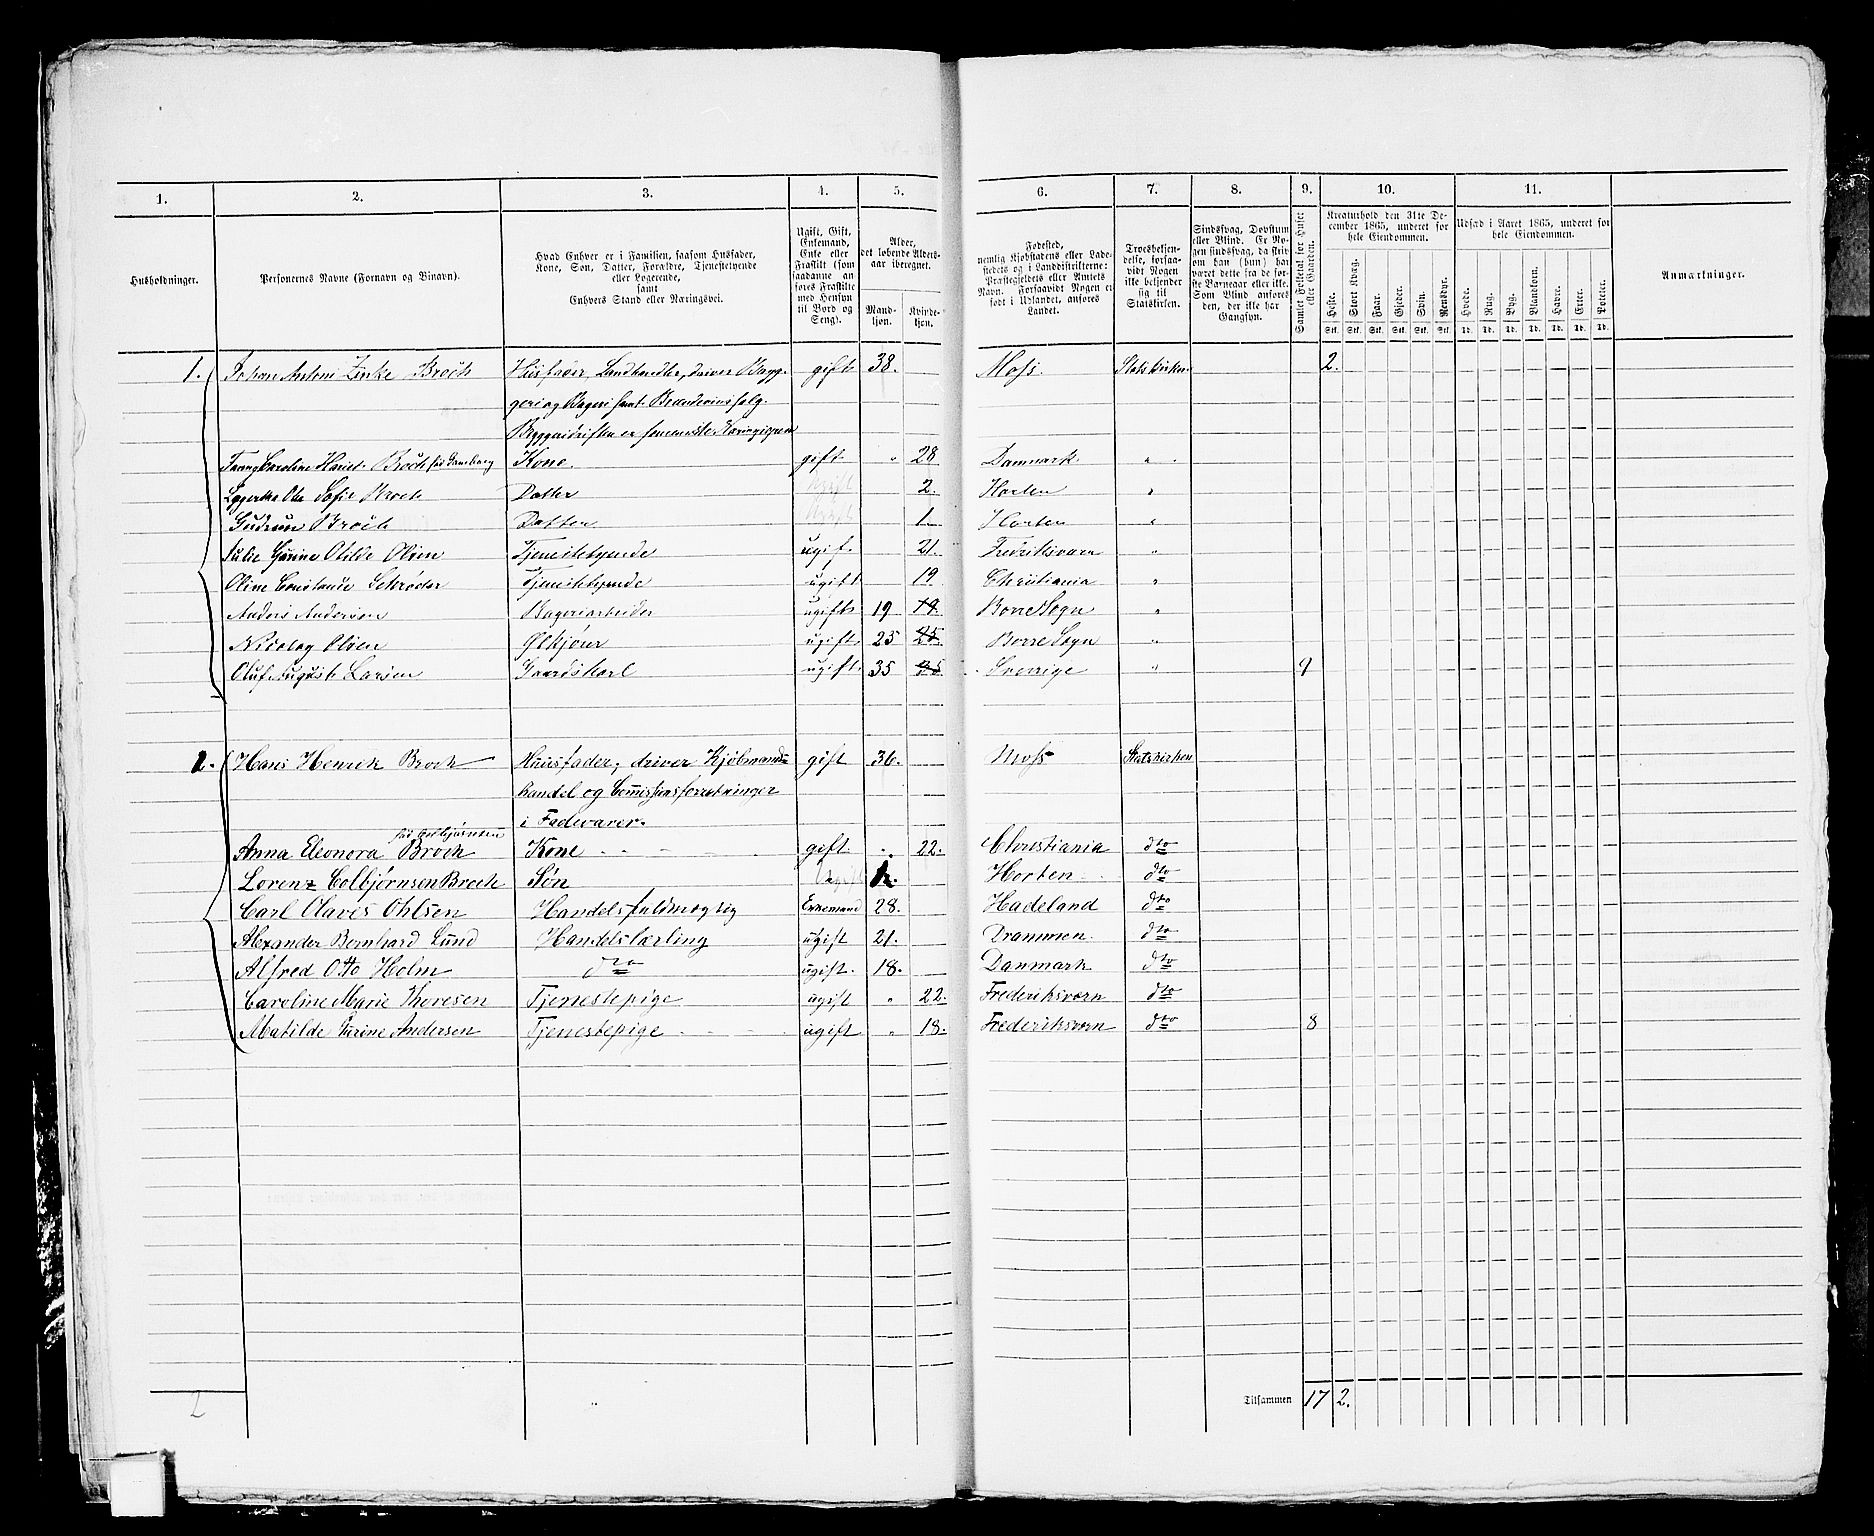 1. 2. 3. 4. 5. 6. 7. 8. 9. 10. 11.
Husholdninger.
Personernes Navne (Fornavn og Binavn).
Hvad Enhver er i Familien, saasom Husfader,
Kone, Søn, Datter, Forældre, Tjenestetyende
eller Logerende,
samt
Enhvers Stand eller Næringsvei.
Ugift, Gift,
Enkemand,
Enke eller
Fraskilt (som
saadanne an-
føres Fraskilte
med Hensyn
til Bord og
Seng).
Alder,
det løbende Alders-
aar iberegnet.
Mand-
kjøn.
Kvinde-
kjøn.
Fødested,
nemlig Kjøbstadens eller Lade-
stedets og i Landdistrikterne:
Præstegjeldets eller Amtets
Navn. Forsaavidt Nogen er
født i Udlandet, anføres
Landet.
Troesbekjen-
delse, forsaa-
vidt Nogen
ikke bekjender
sig til
Statskirken.
Sindssvag, Døvstum
eller Blind. Er No-
gen sindssvag, da skriv
om han (hun) har
været dette fra de før-
ste Barneaar eller ikke.
Som Blind anføres
den, der ikke har
Gangsyn.
Samlet Folketal for Huset
eller Gaarden.
Kreaturhold den 31te De-
cember 1865, underet for
hele Eiendommen.
Heste. Stort Kvæg. Faar. Gjeder. Svin. Rensdyr.
Stk. Stk. Stk. Stk. Stk. Stk.
Udsæd i Aaret 1865, underet for
hele Eiendommen.
Hvede. Rug. Byg. Blandkorn. Havre. Erter. Poteter.
Td. Td. Td. Td. Td. Td. Td.
Anmærkninger.
1. Johan Antoni Zinke Broch Husfader, Landhandler, driver Bryg- gift 38. Moss. Statskirken 2.
geri og Bageri samt Brændeviinssalg.
Bryggeridriften er
Caroline Broch Kone. gift " 28 Danmark "
Sofie Broch Datter Ugift 2. Horten "
Gudrun Broch Datter Ugift 1. Horten "
Julie Otilde Olsen Tjenestetyende ugif. 21. Fredriksværn "
Oline Constance Schrøder Tjenestetyende ugift 19 Christiania "
Anders Andersen Bageriarbeider ugift 19 19. Borre Sogn "
Nicolay Olsen Ølkjører ugift. 25 25. Borre Sogn "
Oluf August Larsen Gaardskarl ugift. 35 35 Sverrige " 9
2. Hans Henrik Broch Huusfader, driver Kjøbmands- gift 36. Moss Statskirken
handel og Commissionsforretninger
i Fedevarer.
fød Colbjørnsen
Anna Eleonora Broch Kone gift " 22. Christiania dto
Lorenz Colbjørnsen Broch Søn Ugift Horten dto
Carl Olavis Ohlsen Handelsfuldmægtig Enkemand 28. Hadeland dto
Alexander Bernhard Lund Handelslærling ugift 21. Drammen. dto
Alfred Otto Holm dto ugift. 18. Danmark dto
Caroline Marie Thoresen Tjenestepige ugift " 22. Frederiksværn dto
Matilde Andersen Tjenestepige ugift " 18. Frederiksværn dto 8
2
Tilsammen 17 2.